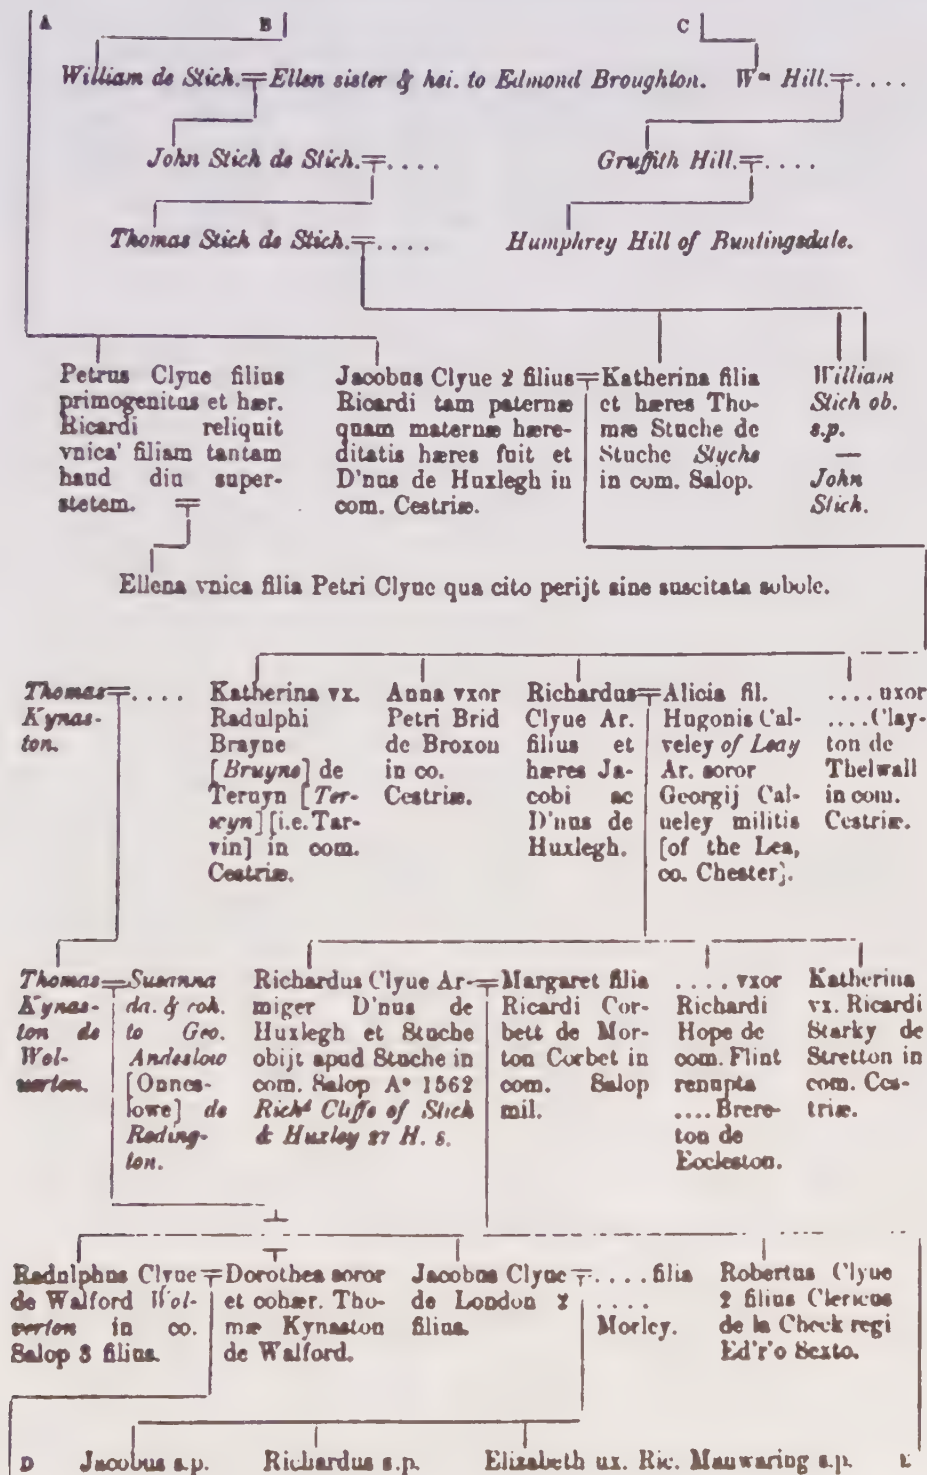 A B C
William de Stich.=Ellen sister & hei. to Edmond Broughton. Wm Hill.=....
John Stich de Stich.=.... Gruffith Hill.=....
Thomas Stich de Stich.=.... Humphrey Hill of Buntingsdale.
Petrus Clyue filius
primogenitus et hær.
Ricardi reliquit
vnica' filiam tantam
haud diu super-
stetem. =
Jacobus Clyue 2 filius=
Ricardi tam paternæ
quam maternæ hære-
ditatis hæres fuit et
D'nus de Huxlegh in
com. Cestriæ.
Katherina filia
et hæres Tho-
mæ Stuche de
Stuche Styche
in com. Salop.
William
Stich ob.
s.p.
—
John
Stich.
Ellena vnica filia Petri Clyue qua cito perijt sine suscitata sobole.
Thomas=....
Kynas-
ton.
Katherina vx.
Radulphi
Brayne
[Bruyne] de
Teruyn [Ter-
wyn] [i.e. Tar-
vin] in com.
Cestriæ.
Anna vxor
Petri Brid
de Broxon
in co.
Cestriæ.
Richardus=
Clyue Ar.
filius et
hæres Ja-
cobi ac
D'nus de
Huxlegh.
Alicia fil.
Hugonis Cal-
veley of Leay
Ar. soror
Georgij Cal-
ueley militis
[of the Lea,
co. Chester].
....uxor
....Clay-
ton de
Thelwall
in com.
Cestriæ.
Thomas=
Kynas-
ton de
Wol-
uerton.
Susanna
da. & coh.
to Geo.
Andeslow
[Onnes-
lowe] de
Roding-
ton.
Richardus Clyue Ar-=
miger D'nus de
Huxlegh et Stuche
obijt apud Stuche in
com. Salop Ao 1562
Richd Cliffe of Stich
& Huxley 27 H. 8.
Margaret filia
Ricardi Cor-
bett de Mor-
ton Corbet in
com. Salop
mil.
....vxor
Richardi
Hope de
com. Flint
renupta
....Brere-
ton de
Eccleston.
Katherina
vx. Ricardi
Starky de
Stretton in
com. Ces-
triæ.
Radulphus Clyue=
de Walford Wol-
verton in co.
Salop 3 filius.
Dorothea soror
et cohær. Tho-
mæ Kynaston
de Walford.
Jacobus Clyue=
de London 2
filius.
....filia
....
Morley.
Robertus Clyue
2 filius Clericus
de la Check regi
Ed'r'o Sexto.
D Jacobus s.p. Richardus s.p. Elizabeth ux. Ric. Mauwaring s.p. E